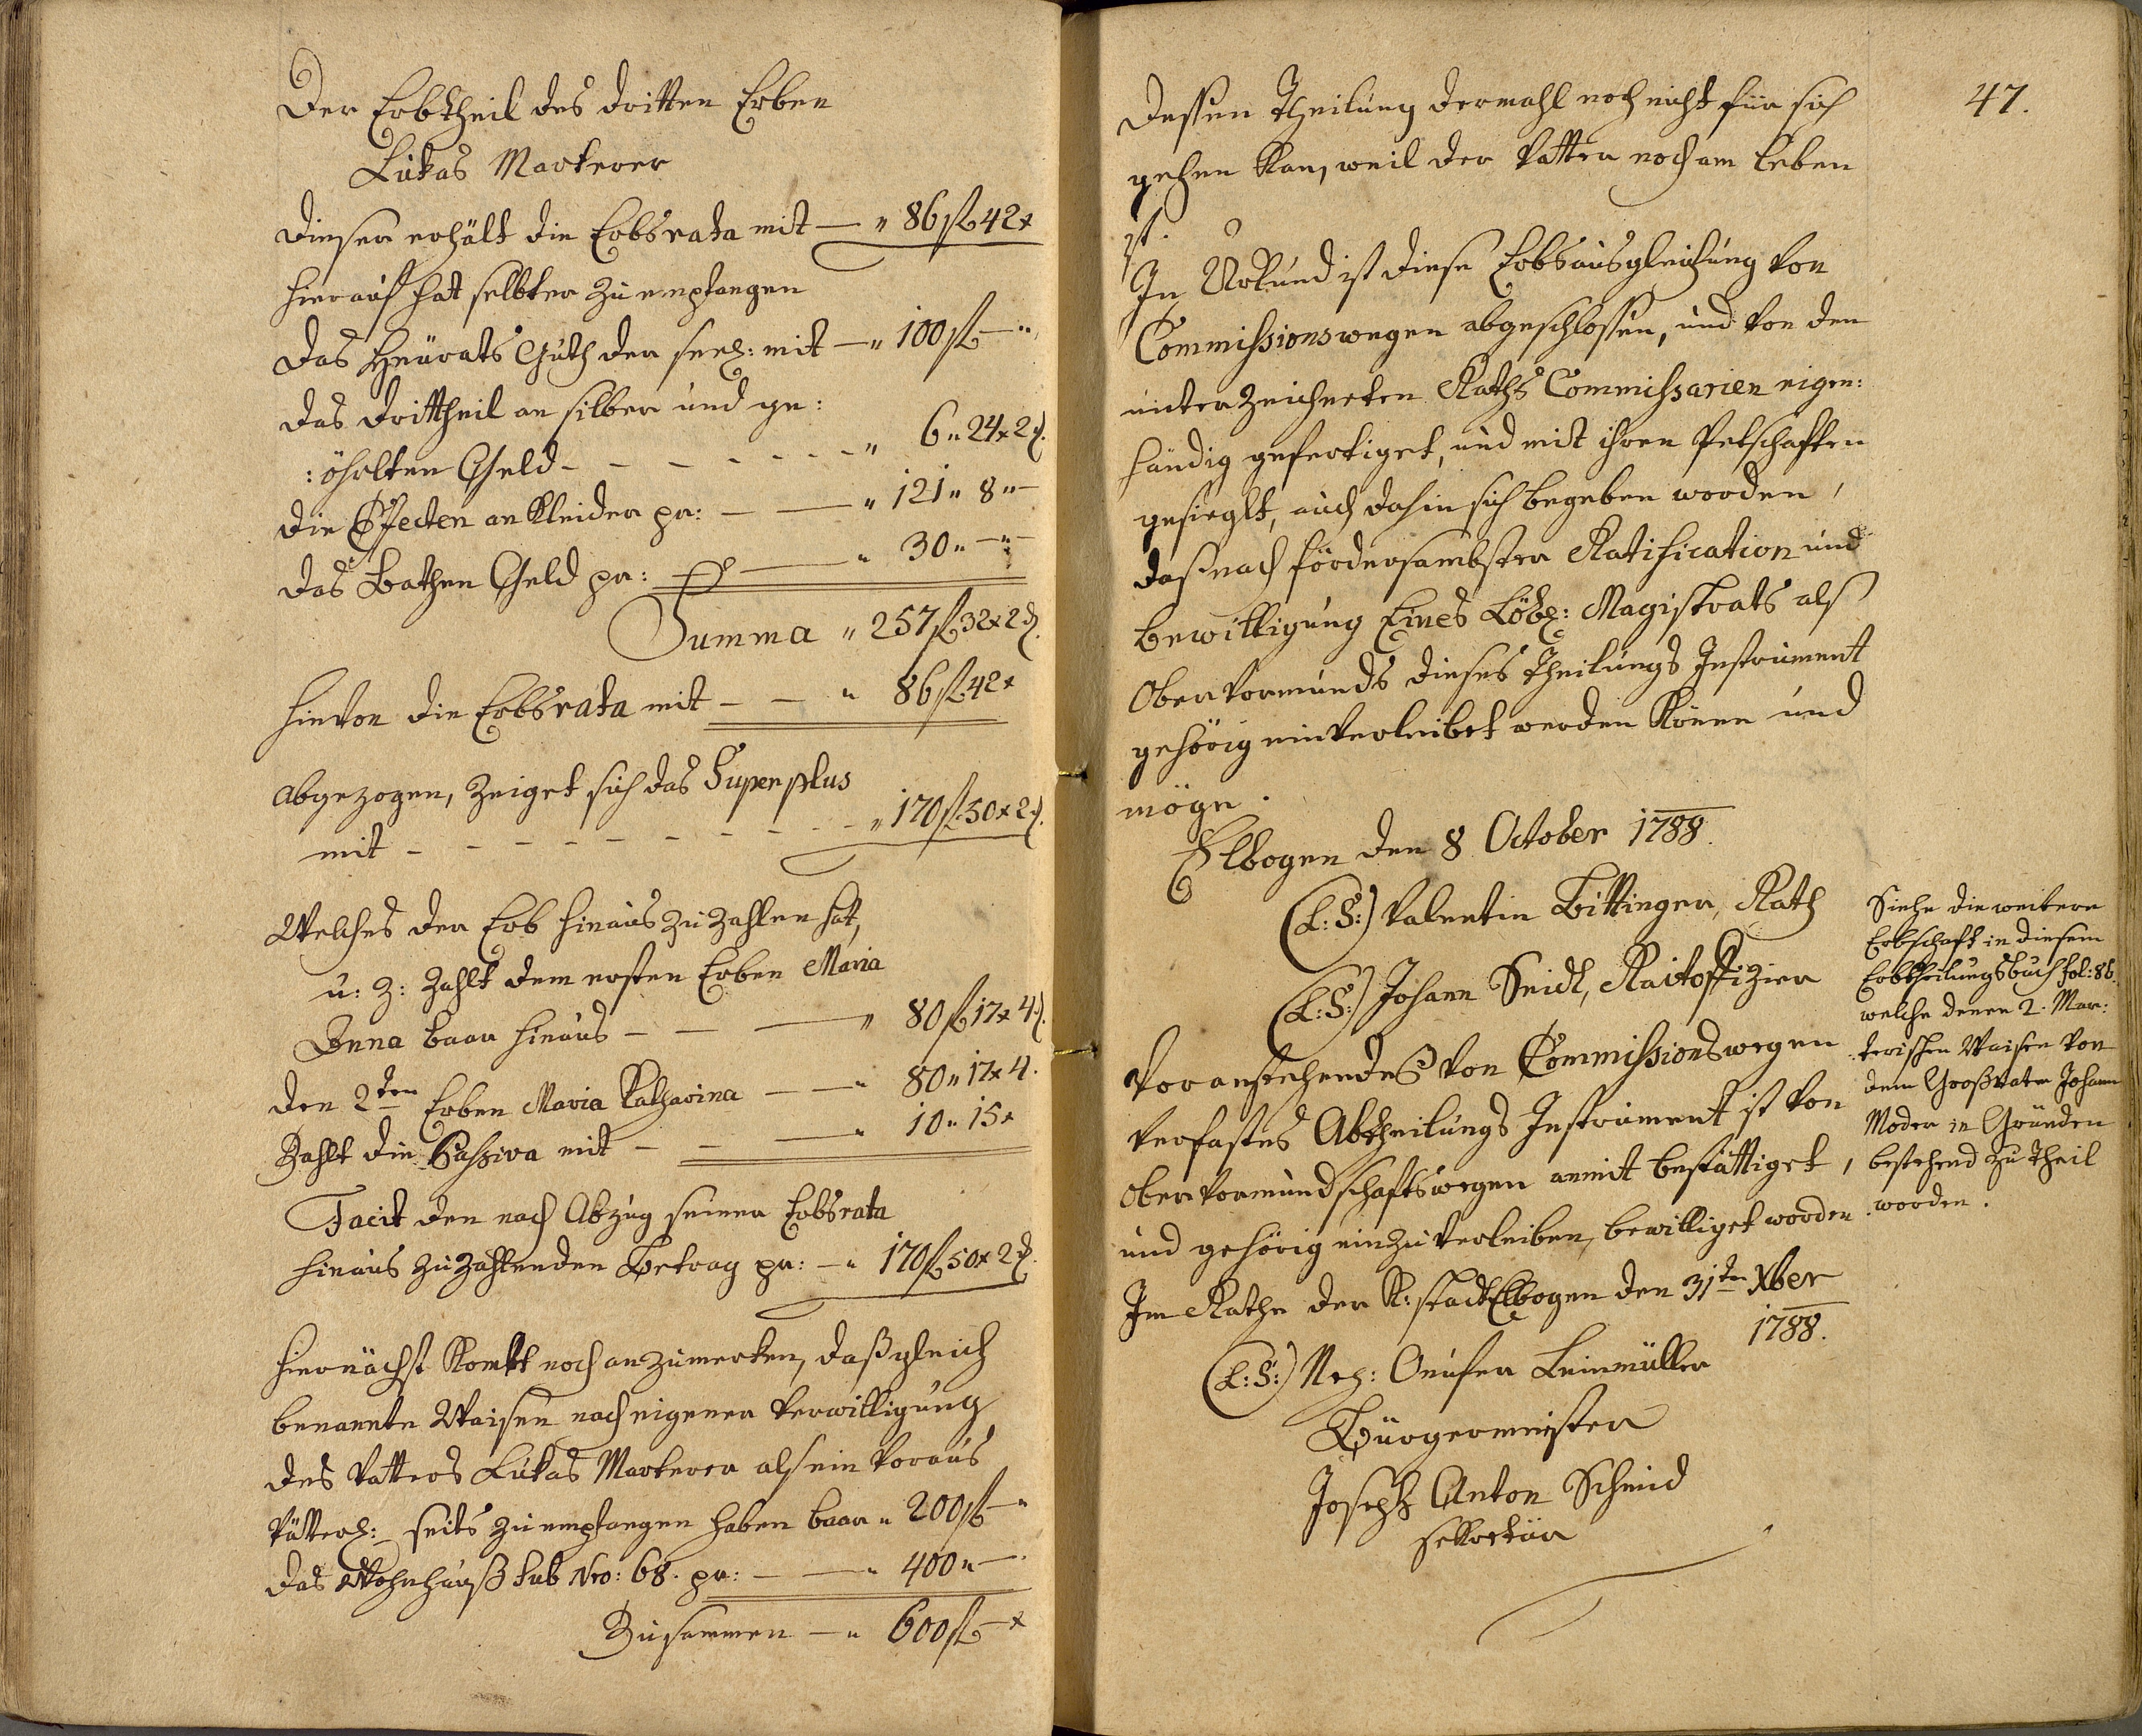 Der Erbtheil des dritten Erben
Lukas Markerer
Dieser erhält die Erbsrata mit — " 86 fl 42 x
hierauf hat selbter zu empfangen
das Heürats Guth der seel: mit — " 100 fl — "
das drittheil an silber und ge:
:öhrlten Geld - - - - - - " 6 " 24 x 2 d.
die Effecten an Kleider pr: — — " 121 " 8 " —
das Bathen Geld pr: — — " 30 " — " —
Summa " 257 fl 32 x 2 d.
hievon die Erbsrata mit - — " 86 fl 42 x
abgezogen, zeiget sich das Superplus
mit - - - - - - - - " 170 fl 50 x 2 d.
Welches der Erb hinaus zu zahlen hat,
u: z: zahlt dem ersten Erben Maria
Anna baar hinaus — — — " 80 fl 17 x 4 d.
den 2ten Erben Maria Katharina — " 80 " 17 x 4.
Zahlt die Passiva mit - — — " 10 " 15 x
Facit den nach Abzug seiner Erbsrata
hinaus zu zahlenden Betrag pr: — " 170 fl 50 x 2 d.
hiernächst komt noch anzumerken, daß gleich
benannte Waisen nach eigener Verwilligung
des Vatters Lukas Markerer als ein Voraus
Vätterl: seits zu empfangen haben baar " 200 fl — "
das Wohnhauß sub Nro: 68. pr: — — " 400 " —
Zusammen — " 600 fl — x
47.
dessen Theilung dermahl noch nicht für sich
gehen kan, weil der Vatter noch am Leben
ist.
In Urkund ist diese Erbsausgleichung von
Commissionswegen abgeschlossen, und von den
unterzeichneten Raths Commissarien eigen:
händig gefertiget, und mit ihren Petschaften
gesieglt, auch dahin sich begeben worden,
daß nach fördersambster Ratification und
bewilligung Eines Löbl: Magistrats als
Obervormunds dieses Theilungs Instrument
gehörig einverleibet werden könne und
möge.
Elbogen den 8 October 1788.
(L:S:) Valentin Bittinger, Rath
(L:S:) Johann Seidl, Raitoffizier
Voranstehendes von Commissionswegen
verfastes Abtheilungs Instrument ist von
Obervormundschaftswegen anmit bestättiget,
und gehörig einzuverleiben, bewilliget worden.
Im Rathe der K: stadt Elbogen den 31ten Xber
1788.
(L:S:) Leinmüller
Bürgermeister
Joseph Anton Schmid
sekretär
Siehe die weitere
Erbschaft in diesem
Erbtheilungsbuch fol: 86.
welche denen 2. Mar:
kerischen Waisen von
dem Großvater Johann
Moder in Gründen
bestehend zu Theil
worden.